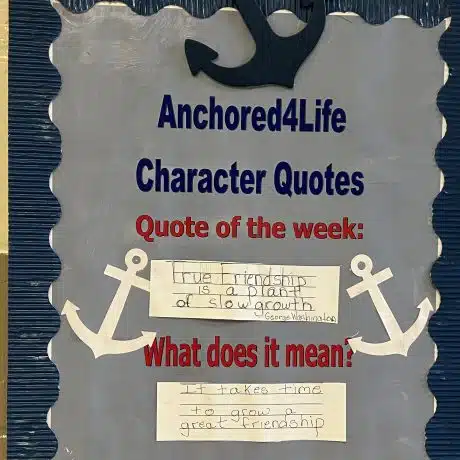 Anchored4Life
Character Quotes
Quote of the week:
True Friendship
is a plant
of slow growth
George Washington
What does it mean?
It takes time
to grow a
great friendship